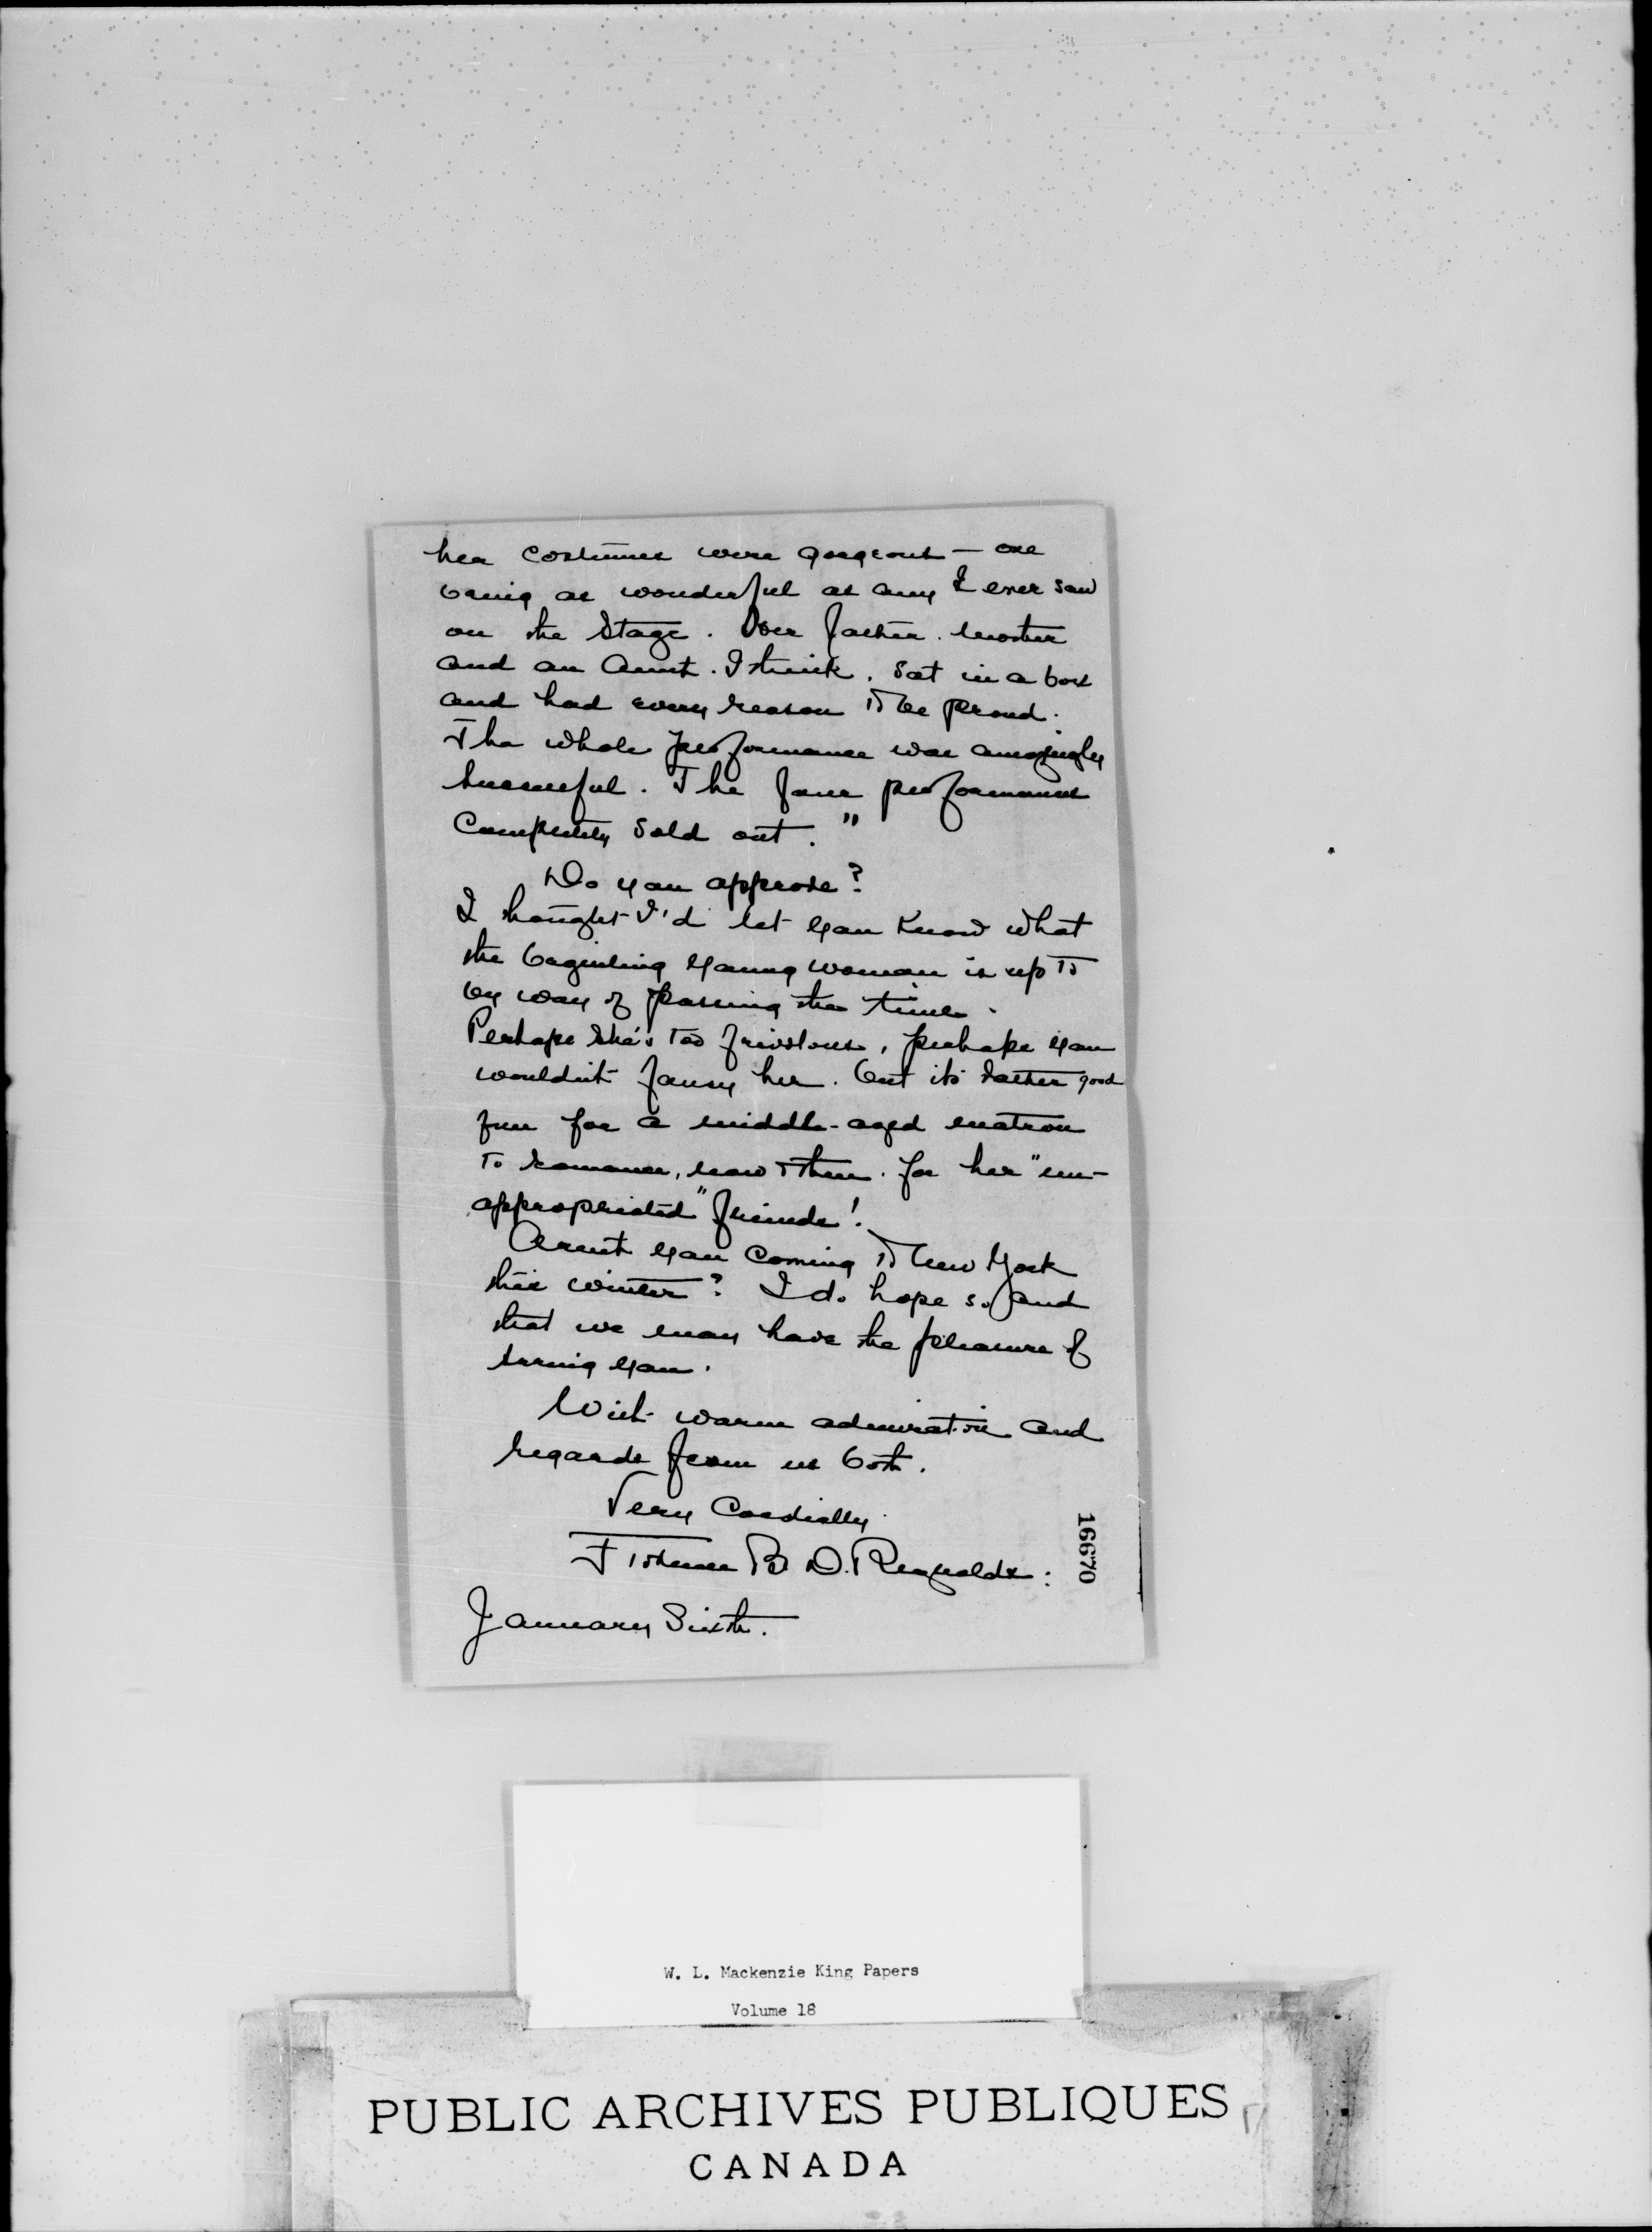 her costumes were gorgeous — one
being as wonderful as any I ever saw
on the Stage. Her father, mother
and an Aunt, I think, sat in a box
and had every reason to be proud.
The whole performance was amazingly
successful. The four performances
completely sold out."
Do you approve?
I thought I'd let you know what
the beguiling young woman is up to
by way of passing the time.
Perhaps she's too frivolous, perhaps you
wouldn't fancy her. But it's rather good
fun for a middle-aged matron
to romance, now & then, for her "un-
appropriated" friends!
Arent you coming to New York
this winter? I do hope so and
that we may have the pleasure of
seeing you.
With warm admiration and
regards from us both.
Very Cordially
Florence B D. Reynolds:
January Sixth.
16670
W. L. Mackenzie King Papers
Volume 18
PUBLIC ARCHIVES PUBLIQUES
CANADA